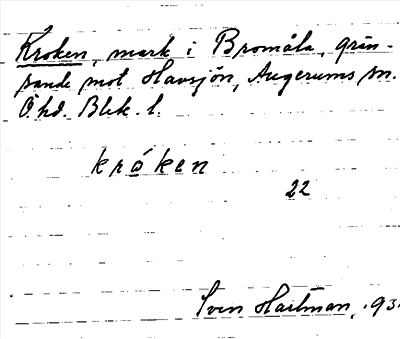 Kroken, mark i Bromåla, grän-
sande mot Havsjön, Augerums sn.
Ö. hd. Blek. l.
króken
22
Sven Hartman, .93.